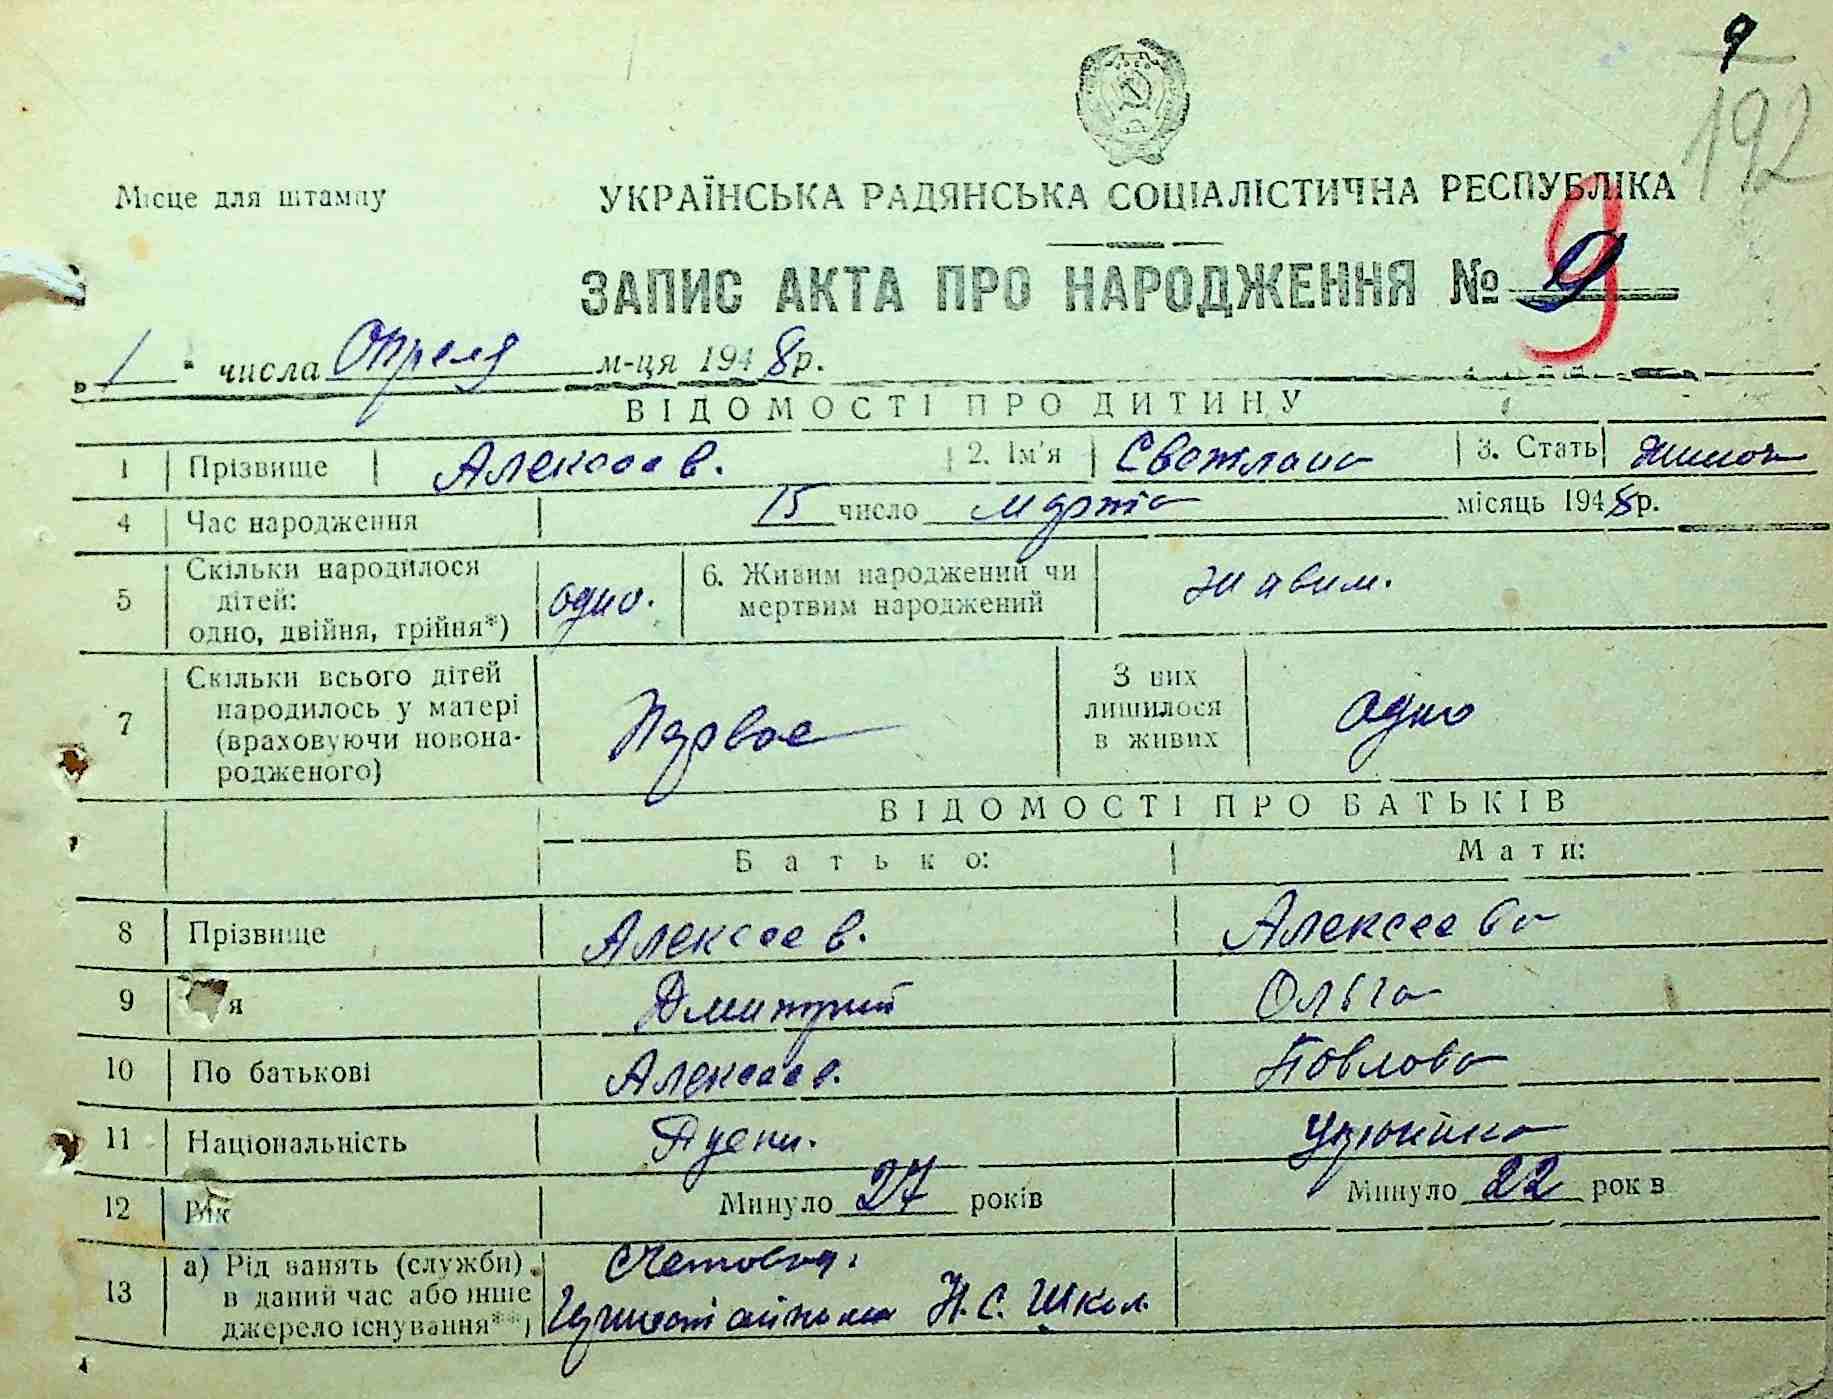 9
192
Місце для штампу
УКРАЇНСЬКА РАДЯНСЬКА СОЦІАЛІСТИЧНА РЕСПУБЛІКА
ЗАПИС АКТА ПРО НАРОДЖЕННЯ № 9
9
„ 1 " числа Опреля м-ця 1948 р.
ВІДОМОСТІ ПРО ДИТИНУ
1 Прізвище Алексеев. 2. Ім'я Светлана 3. Стать
4 Час народження 15 число марта місяць 1948 р.
5 Скільки народилося
дітей:
одно, двійня, трійня*)
одно.
6. Живим народжений чи
мертвим народжений
живим.
7 Скільки всього дітей
народилось у матері
(враховуючи новона-
родженого)
Первое
З них
лишилося
в живих
одно
ВІДОМОСТІ ПРО БАТЬКІВ
Батько: Мати:
8 Прізвище Алексеев. Алексеева
9 я Дмитрий Ольга
10 По батькові Алексеев. Павлова
11 Національність
12 Вік Минуло 27 років Минуло 22 рок в
13 а) Рід занять (служби)
в даний час або інше
джерело існування**)
Счетовод.
Н. С. Школ.